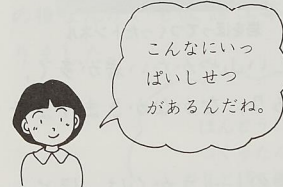 こんなにいっ
ぱいしせつ
があるんだね。